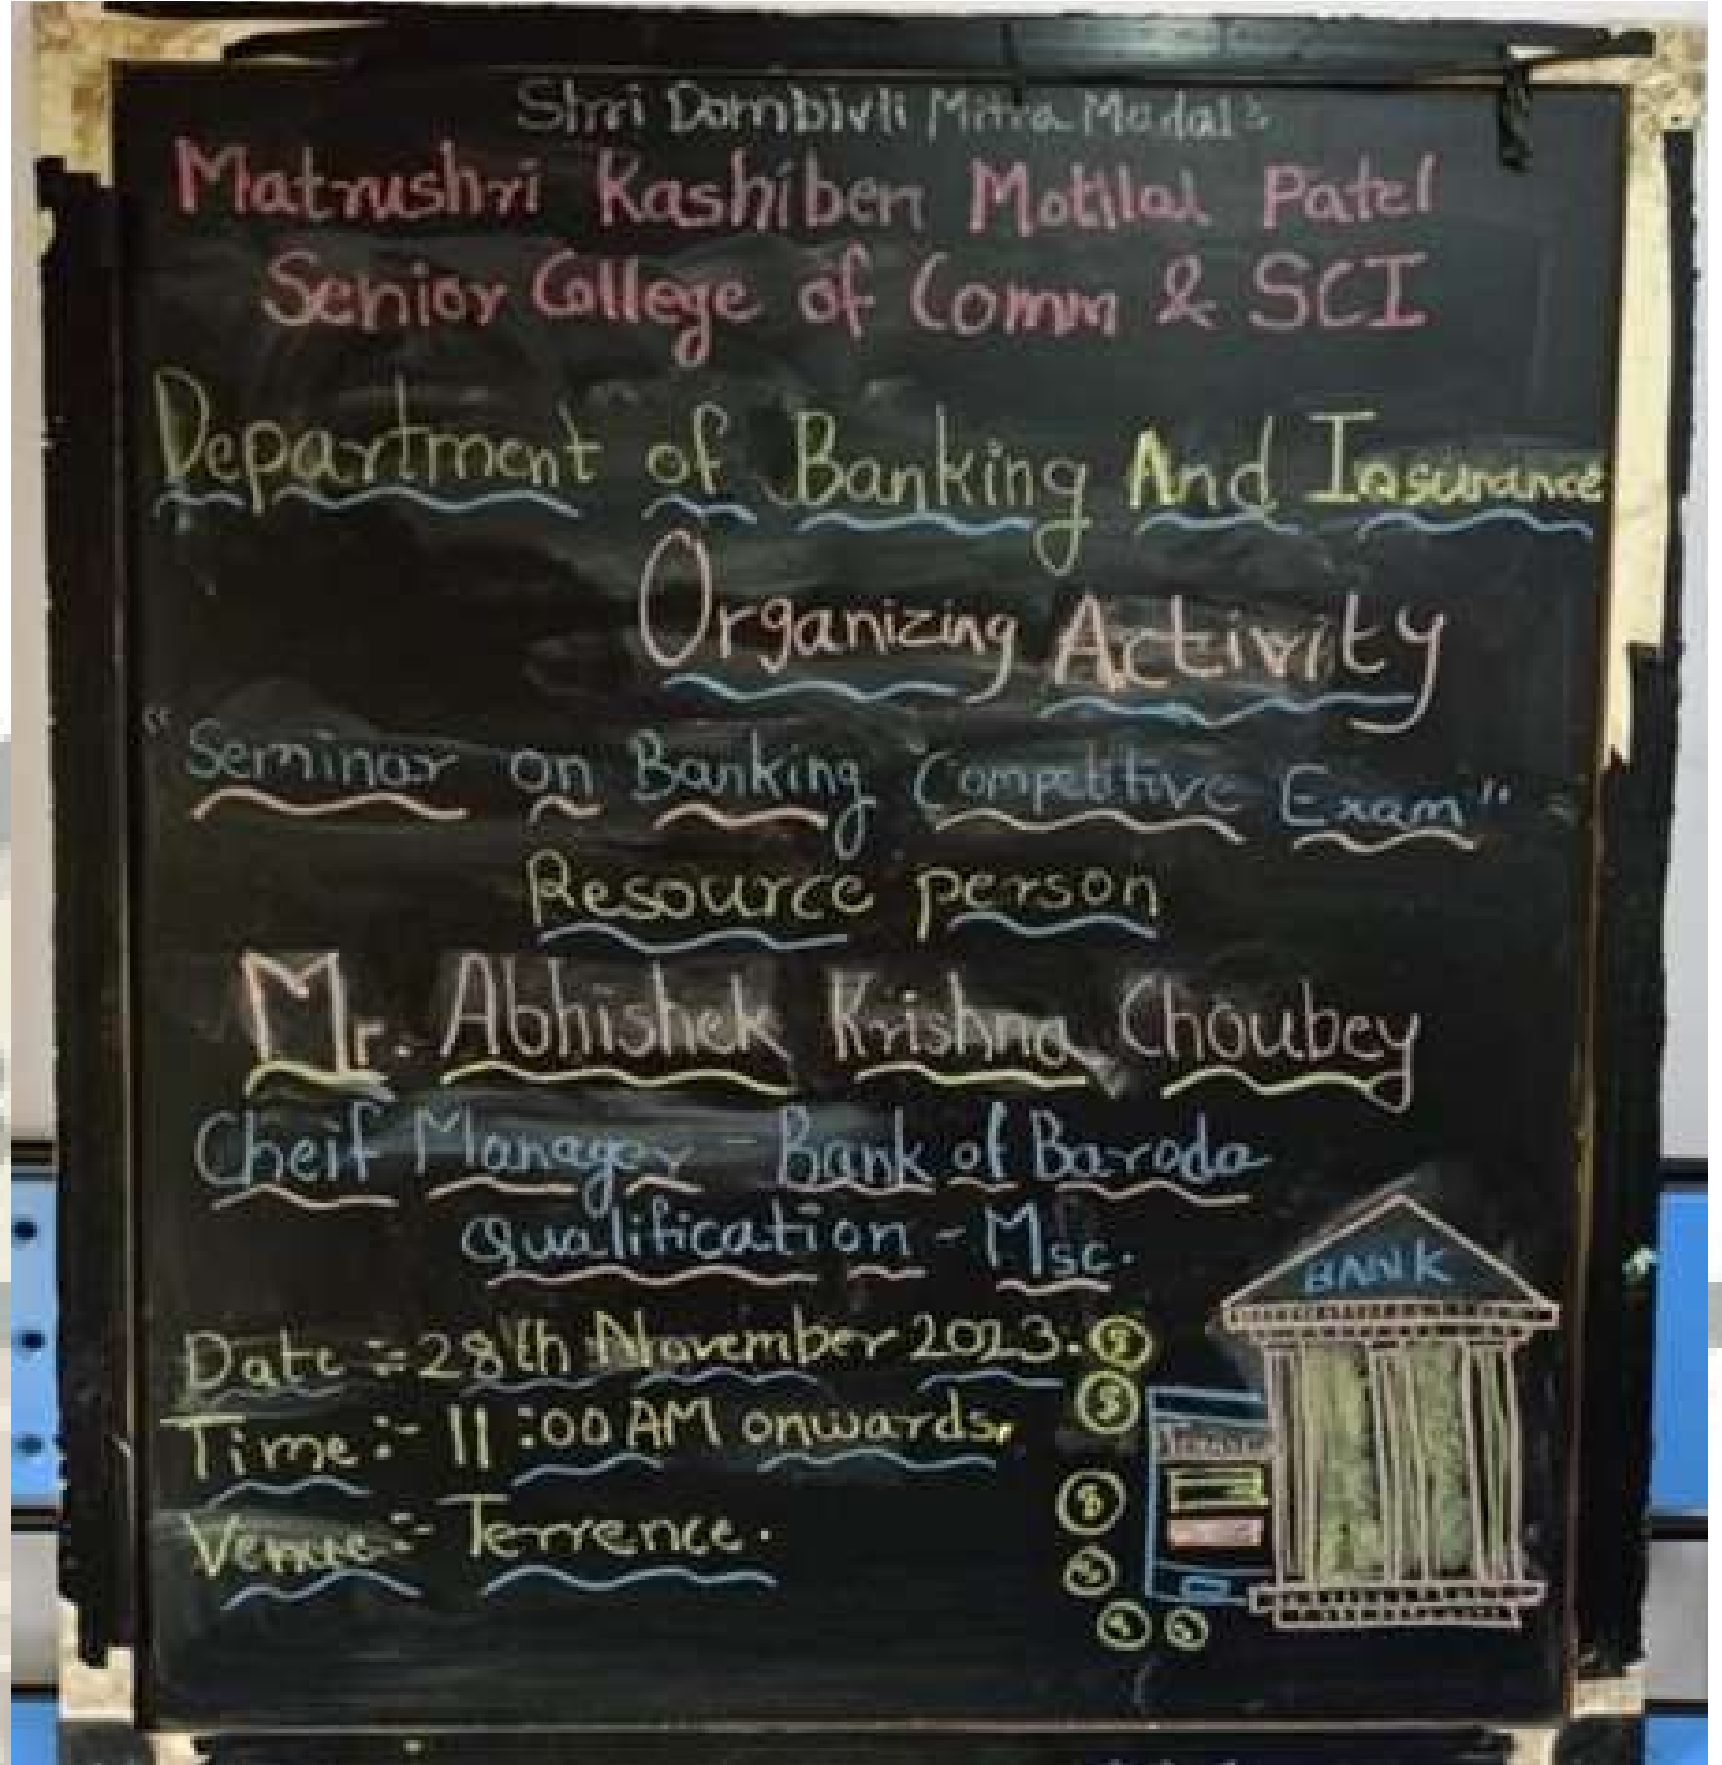 Shri Dombivli Mitra Madal's
Matrushri Kashiben Motilal Patel
Senior College of Comm & SCI
Department of Banking And Insurance
Organizing Activity
"Seminar on Banking Competitive Exam"
Resource person
Mr. Abhishek Krishna Choubey
Cheif Manager - Bank of Baroda
Qualification - Msc.
BANK
Date :- 28th November 2023.
Time :- 11:00 AM onwards.
Venue :- Terrence.